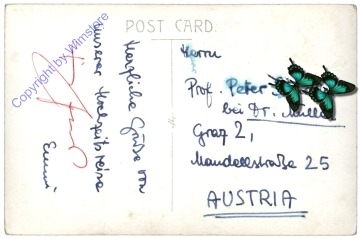 POST CARD.
Herzliche Grüße von
unserer Hochzeitsreise
Emmi
Herrn
Prof. Peter
bei Dr. Mulle
Graz 2,
Mandellstraße 25
AUSTRIA
Copyright by Wimstore